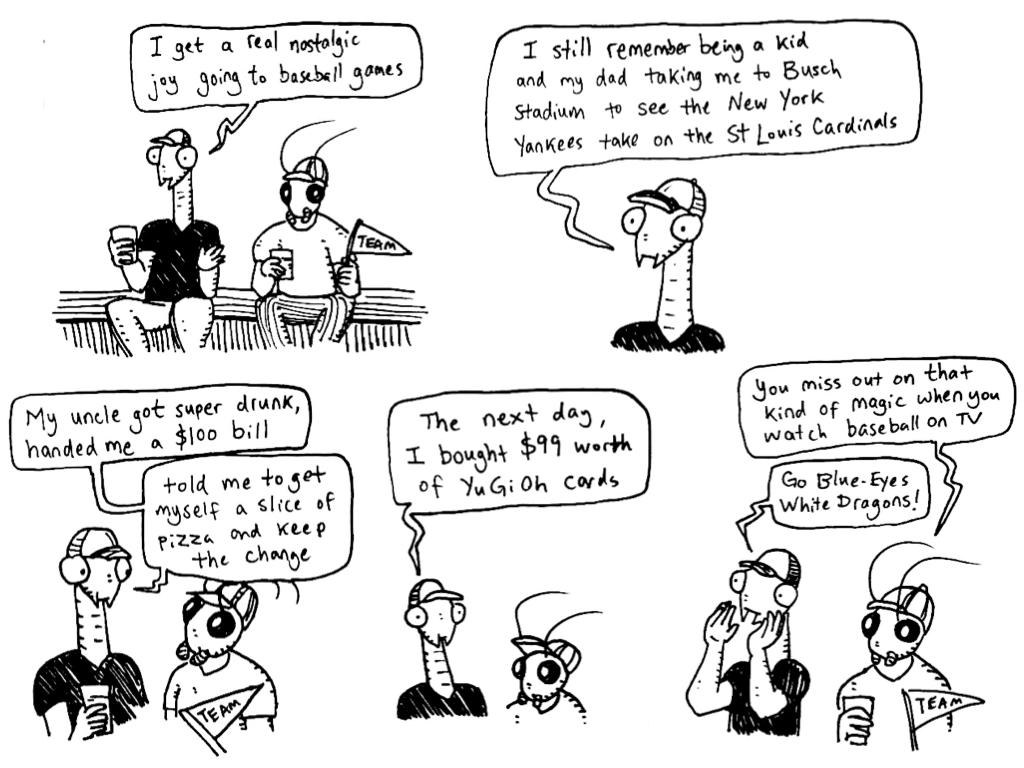 I get a real nostalgic
joy going to baseball games
TEAM
I still remember being a kid
and my dad taking me to Busch
Stadium to see the New York
Yankees take on the St Louis Cardinals
My uncle got super drunk,
handed me a $100 bill
told me to get
myself a slice of
pizza and keep
the change
TEAM
The next day,
I bought $99 worth
of YuGiOh cards
You miss out on that
kind of magic when you
watch baseball on TV
Go Blue-Eyes
White Dragons!
TEAM